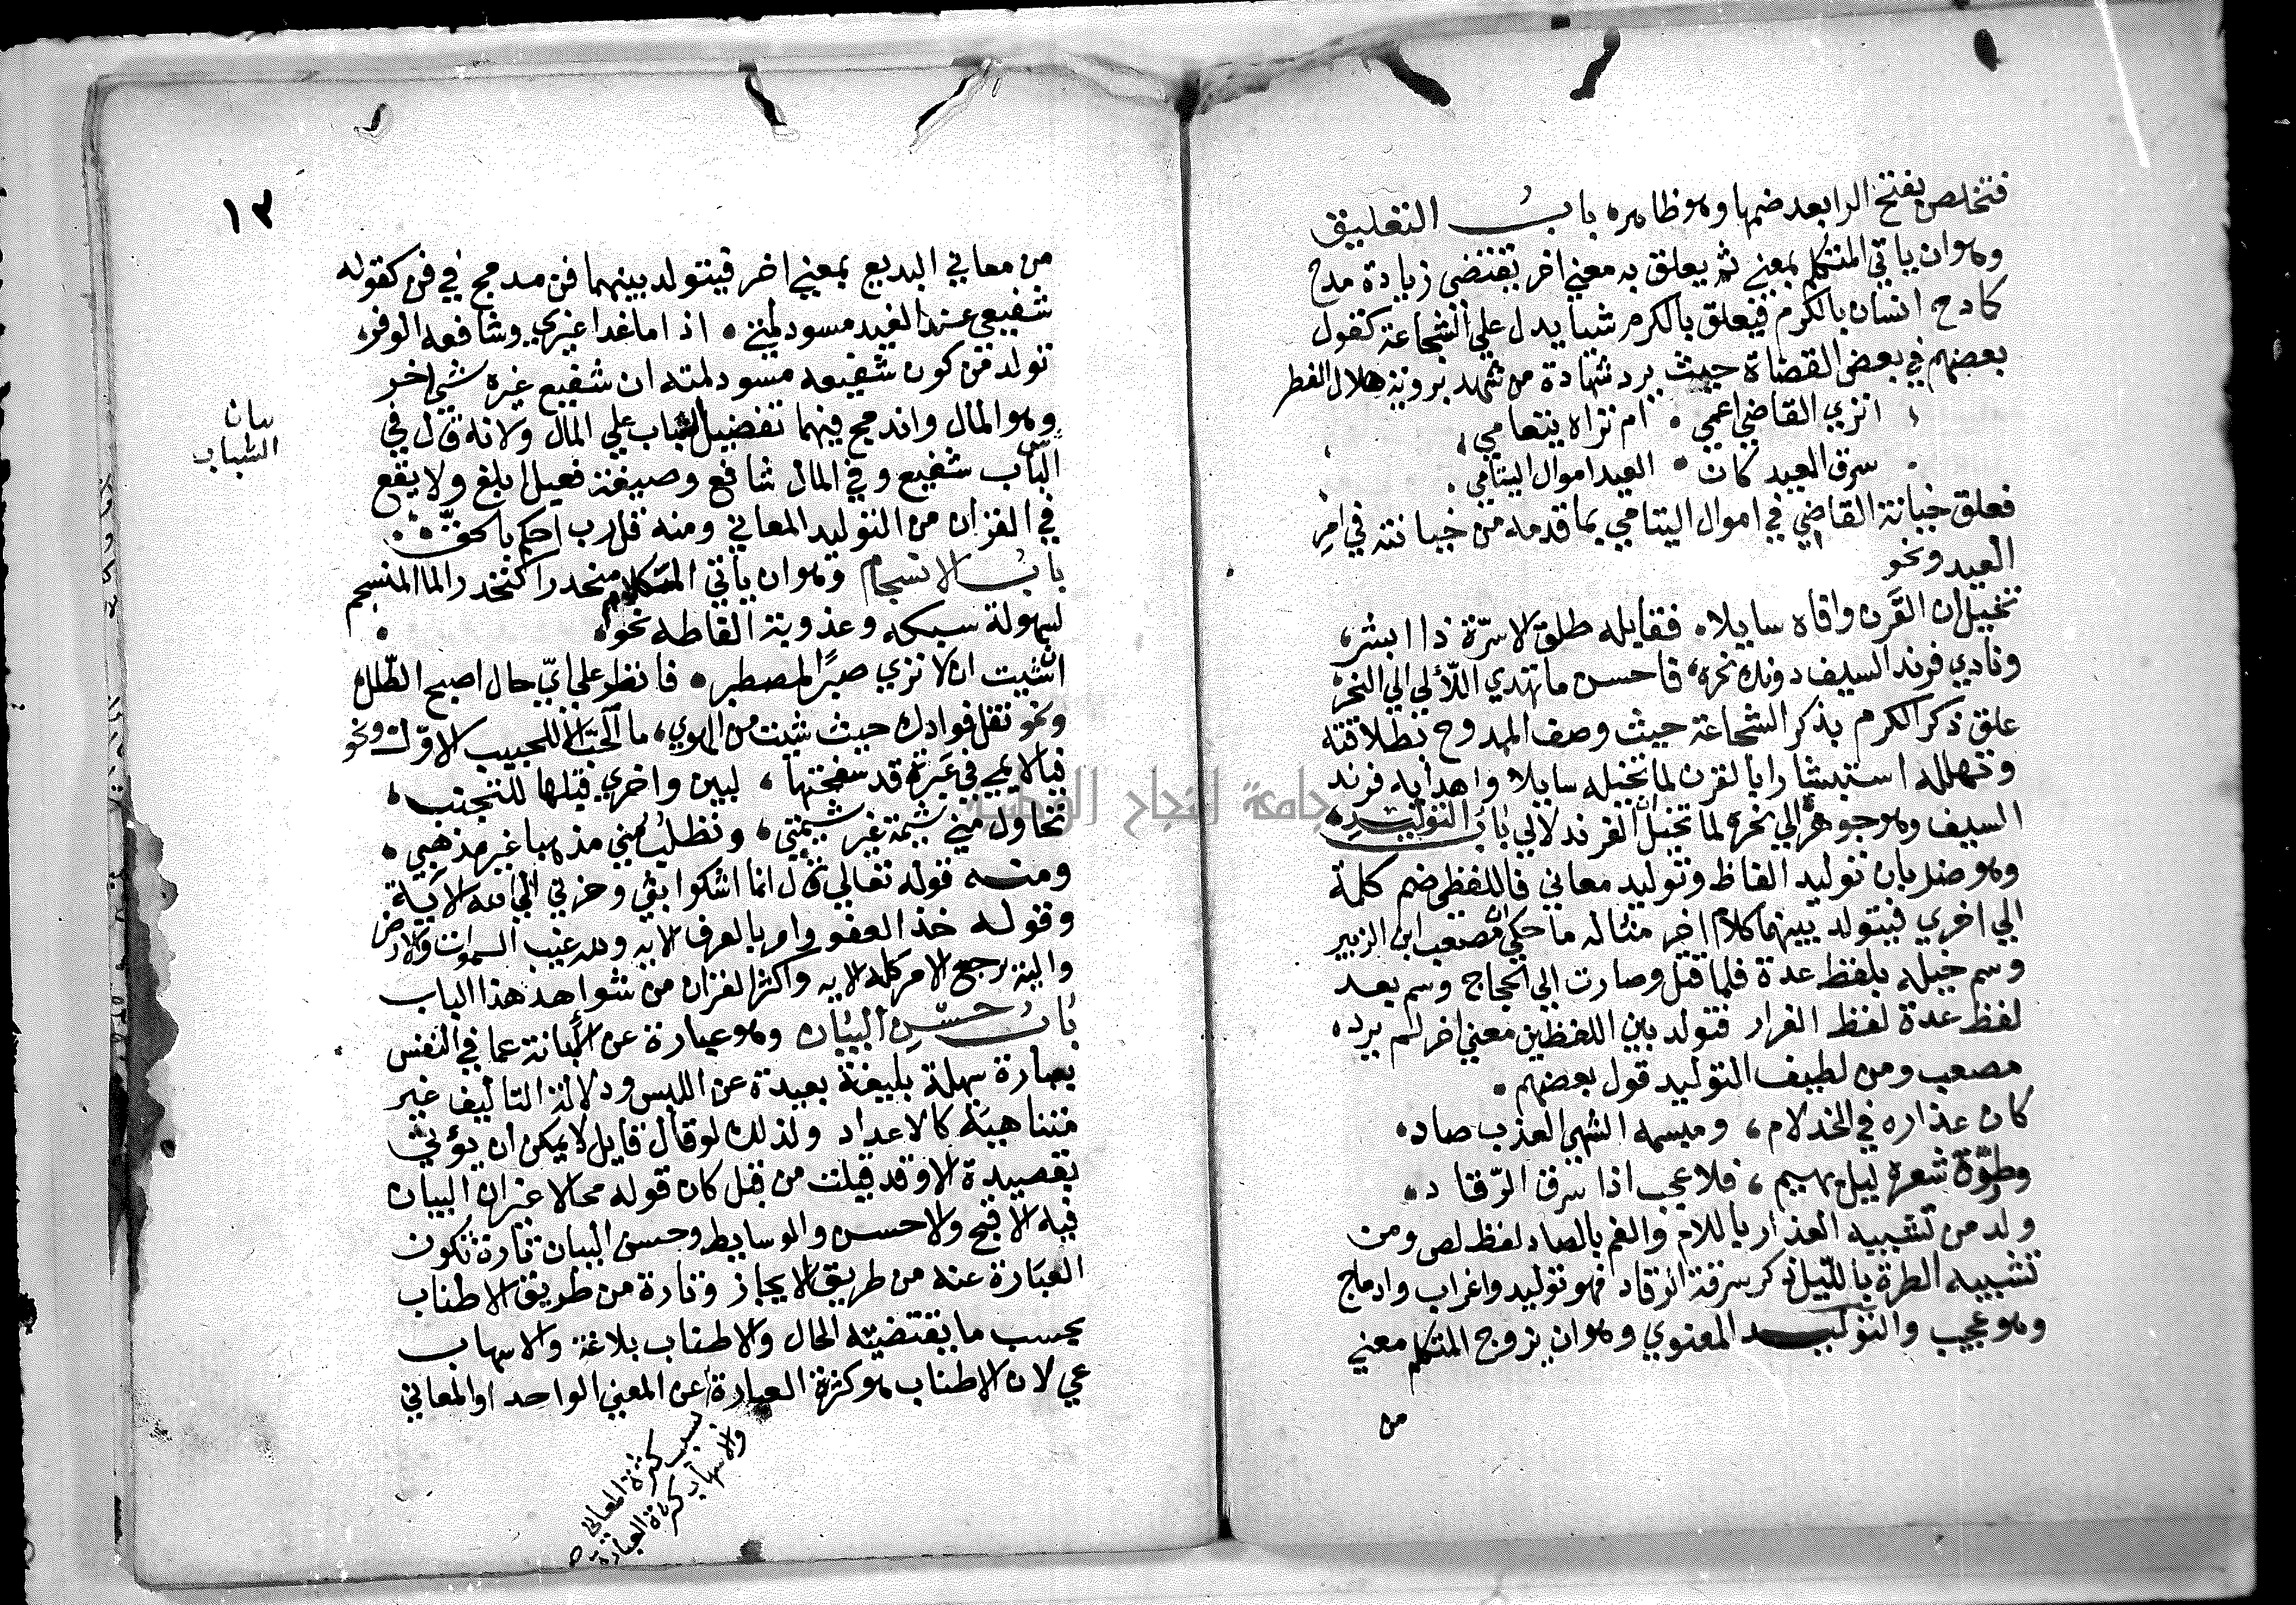 فتخلص بفتح الرا بعد ضمها وهو ظاهره باب التعليق
وهو ان ياتي المتكلم بمعني ثم يعلق به معني اخر يقتضي زيادة مدح
كادح انسان بالكرم فيعلق بالكرم شيا يدل علي الشجاعة كقول
بعضهم في بعض القضاة حيث يرد شهادة من شهد بروية هلال الفطر
اتري القاضي اعمي • ام تراه يتعامي
سرق العيد كان • العيد اموال اليتامي
فعلق خيانة القاضي في اموال اليتامي بما قدمه من خيانته في امر
العيد ونحو
تخيل ان القرن وافاه سايلا • فقابله طلق الاسرة ذا ابشر
ونادي فرند السيف دونك نحره • فاحسن ما تهدي اللألي الي النحر
علق ذكر الكرم بذكر الشجاعة حيث وصف الممدوح بطلاقته
وتهلله استبشارا بالقرن لما تخيله سايلا واهدايه فرند
السيف وهو جوهره الي نحره لما تخيل الفرند لالي باب التوليد
وهو ضربان توليد الفاظ وتوليد معاني فاللفظي ضم كلمة
الي اخري فيتولد بينهما كلام اخر مثاله ما حكي ان مصعب ابن الزبير
وسم خيله بلفظ عدة فلما قتل وصارت الي الحجاج وسم بعد
لفظ عدة لفظ الفرار فتولد بين اللفظين معني اخر لم يرده
مصعب ومن لطيف التوليد قول بعضهم •
كان عذاره في الخد لام ، ومبسمه الشهي العذب صاد •
وطرة شعره ليل بهيم ، فلا عجب اذا سرق الرقاد •
ولد من تشبيه العذار باللام والفم بالصاد لفظ لص ومن
تشبيه الطرة بالليل ذكر سرقة الرقاد فهو توليد واغراب وادماج
وهو عجيب والتوليد المعنوي وهو ان يزوج المتكلم معني
من
١٣
من معاني البديع بمعني اخر فيتولد بينهما فن مدمج في فن كقوله
شفيعي عند الغيد مسود لمتي • اذا ما غدا غيري وشافعه الوفر
تولد من كون شفيعه مسود لمته ان شفيع غيره شي اخر
وهو المال واندمج فيهما تفضيل الشباب علي المال ولانه قال في
الباب شفيع وفي المال شافع وصيغة فعيل ابلغ ولا يقع
بيان
الشباب
في القران من التوليد المعاني ومنه قل رب احكم بالحق
باب الانسجام وهو ان ياتي الكلام منحدرا كتحدر الما المنسجم
لسهولة سبكه وعذوبة الفاظه نحو
ان شيت ان لا تري صبرا لمصطبر • فانظر علي اي حال اصبح الطلل
ونحو نقل فوادك حيث شيت من الهوي ، ما الحب الا للحبيب الاول ونحو
فيا لايمي في عبرة قد سفحتها ، لبين واخري قبلها للتجنب ،
تحاول مني شيمة غير شيمتي ، وتطلب مني مذهبا غير مذهبي •
ومنه قوله تعالي قال انما اشكوا بثي وحزني الي الله الاية
وقوله خذ العفو وامر بالعرف الايه ولله غيب السموات والارض
واليه يرجع الامر كله الايه واكثر القران من شواهد هذا الباب
باب حسن البيان وهو عبارة عن الابانة عما في النفس
بعبارة سهلة بليغة بعيدة عن اللبس ودلالة التاليف غير
متناهية كالاعداد ولذلك لو قال قايل لا يمكن ان يؤتي
بقصيدة الا وقد قيلت من قبل كان قوله محالا غير ان البيان
فيه الاقبح والاحسن والوسايط وحسن البيان تارة تكون
العبارة عنه من طريق الايجاز وتارة من طريق الاطناب
بحسب ما يقتضيه الحال والاطناب بلاغة والاسهاب
عي لان الاطناب هو كثرة العبارة عن المعني الواحد او المعاني
بسبب كثرة المعاني
والاسهاب كثرة العبارة
جامعة النجاح الوطنية